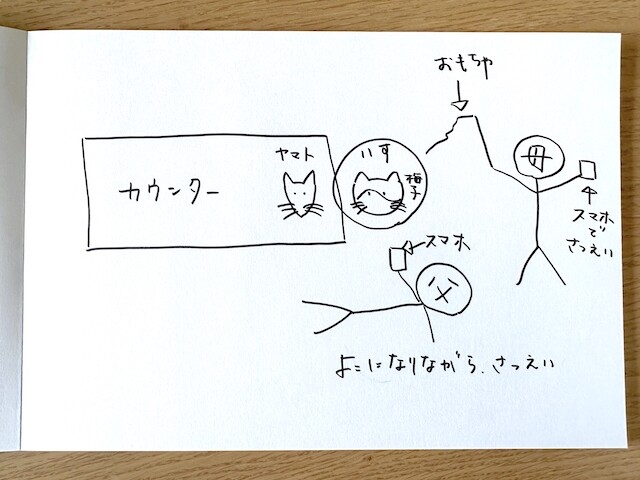 おもちゃ
ヤマト
いす
梅子
カウンター
母
スマホ
で
さつえい
スマホ
父
よこになりながら、さつえい